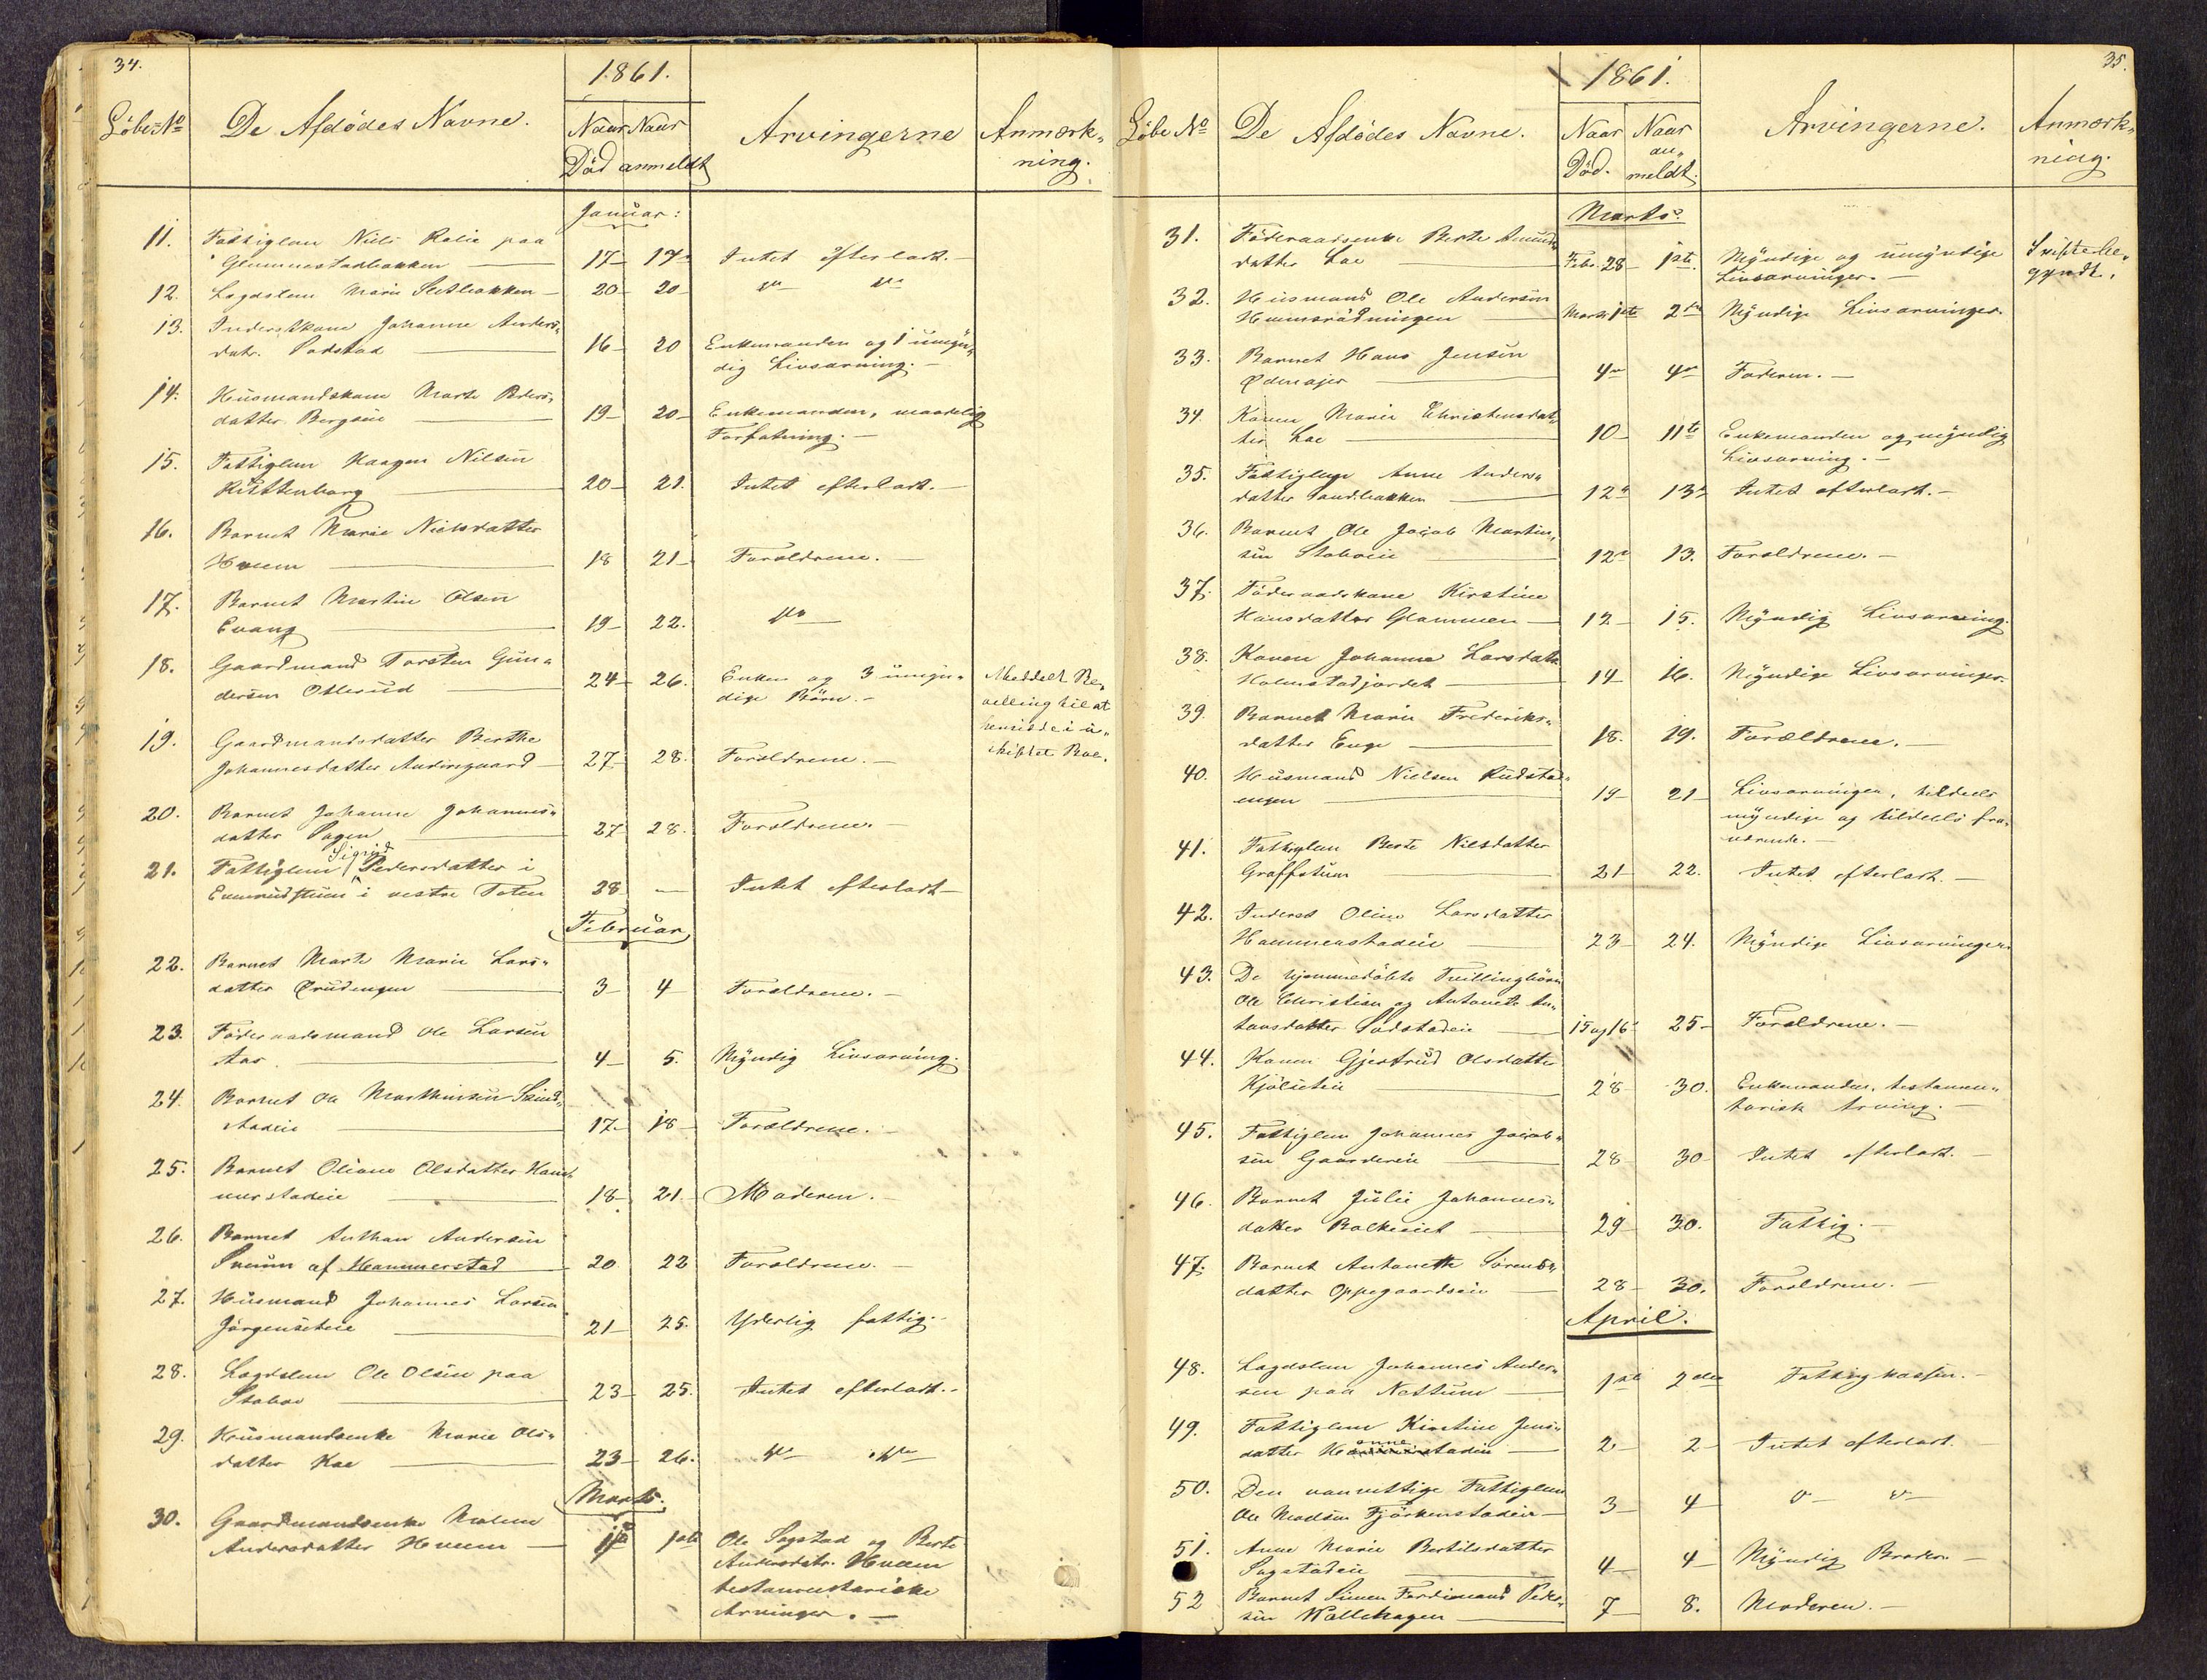 34.
1861.
Löbe-No
De Afdödes Navne.
Naar Död
Naar anmeldt
Arvingerne
Anmærk-
ning.
Januar:
11. Fattiglem Niels Rolie paa
Glemmestadbakken 17 17 Intet efterladt.
12. Lægdslem Marie Sletbakken 20 20 do do
13. Inderstkone Johanne Anders-
datr. Sodstad 16 20 Enkemanden og 1 umyn-
dig Livsarving.
14. Husmandskone Marte Peders-
datter Bergseie 19 20 Enkemanden, maadelig
Forfatning.
15. Fattiglem Haagen Nilsen
20 21. Intet efterladt.
16. Barnet Marie Nielsdatter
Hveem 18 21 Forældrene.
17. Barnet Martin Olsen
Evang 19 22. do
18. Gaardmand Torsten Gun-
dersen Ollerud 24 26. Enken og 3 umyn-
dige Börn.
Meddelt Be-
villing til at
hensidde i u-
skiftet Boe.
19. Gaardmandsdatter Berthe
Johannesdatter Audensgaard 27 28. Forældrene.
20. Barnet Johanne Johannes-
datter Sagen 27 28. Forældrene.
21. Fattiglem Sigrid Pedersdatter i
i vestre Toten 28 — Intet efterladt
Februar
22. Barnet Marte Marie Lars-
datter Örudengen 3 4 Forældrene.
23. Föderaadsmand Ole Larsen
Aas 4 5. Myndig Livsarving.
24. Barnet Ole Marthinsen
stadeie 17 18 Forældrene.
25. Barnet Oliane Olsdatter Ham-
merstadeie 18 21 Moderen.
26. Barnet Anthon Andersen
af Hammerstad 20 22 Forældrene.
27. Husmand Johannes Larsen
Jörgenseteie 21 25. Yderlig fattig.
28. Lægdslem Ole Olsen paa
Stabo 23 25. Intet efterladt.
29. Husmandsenke Marie Ols-
datter Lae 23 26. do do
Marts.
30. Gaardmandsenke Malene
Andersdatter Hveem 1ste 1ste Ole Sogstad og Berte
Andersdatr. Hveem
testamentariske
Arvinger.
35.
1861.
Löbe No
De Afdödes Navne.
Naar Död.
Naar an-
meldt.
Arvingerne.
Anmærk-
ning.
Marts.
31. Föderaadsenke Berte Amunds-
datter Lae Febr. 28 1ste. Myndige og umyndige
Livsarvinger.
Skifte be-
gyndt.
32. Husmand Ole Andersen
Marts 1ste 2den Myndige Livsarvinger.
33. Barnet Hans Jensen
Ödemajer 4de 4de Faderen.
34. Konen Marie Christensdat-
ter Lae 10 11te Enkemanden og myndig
Livsarving.
35. Fattiglem Anne Anders-
datter Sandbakken 12 13 Intet efterladt.
36. Barnet Ole Jacob Martin-
sen Staboeie 12 13. Forældrene.
37. Föderaadskone Kirstine
Hansdatter Glammen 12 15. Myndig Livsarving.
38. Konen Johanne Larsdatr
Holmstadjordet 14 16. Myndige Livsarvinger.
39. Barnet Marie Frederiks-
datter Enge 18. 19. Forældrene.
40. Husmand Nielsen Rudstad-
engen 19 21 Livsarvinger, tildeels
myndige og tildeels fra-
værende.
41. Fattiglem Berte Nielsdatter
Graffstuen 21 22. Intet efterladt.
42. Inderst Oline Larsdatter
Hammerstadeie 23 24. Myndige Livsarvinger.
43. De hjemmedöbte Tvillingbörn
Ole Christian og Antonette An-
tonsdatter Sodstadeie 15 og 16 25 Forældrene.
44. Konen Gjertrud Olsdatter
Kjölseteie 28 30. Enkemanden, testamen-
tarisk Arving.
45. Fattiglem Johannes Jacob-
sen Gaardereie 28 30 Intet efterladt.
46. Barnet Julie Johannes-
datter Balkeeiet 29 30. Fattig.
47. Barnet Antonette Sörens-
datter Oppegaardseie 28 30. Forældrene.
April.
48. Lægdslem Johannes Ander-
sen paa Nettum 1ste 2den Fattigkassen.
49. Fattiglem Kirstine Jens-
datter stadeie 2 2 Intet efterladt.
50. Den vanvittige Fattiglem
Ole Madsen Fjörkenstadeie 3 4 do do
51. Anne Marie Bertilsdatter
Sogstadeie 4 4 Myndig Broder.
52 Barnet Simen Ferdinand Peder-
sen Wollehagen 7 8. Moderen.